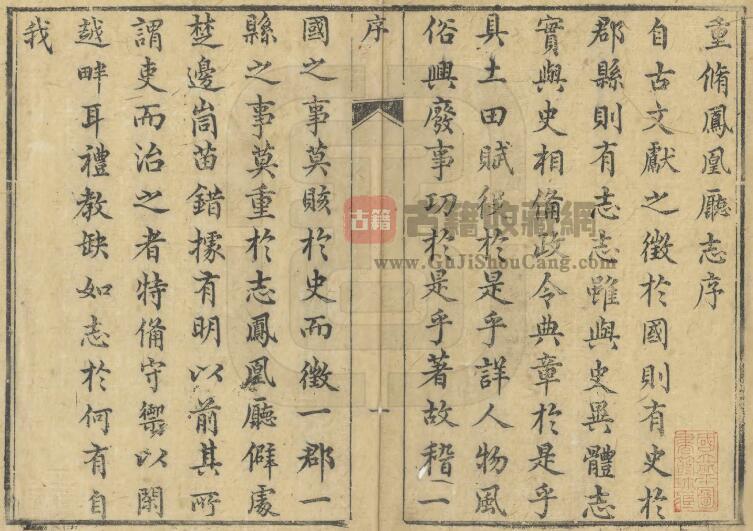 重脩鳳凰廳志序
自古文獻之徵於國則有史於
郡縣則有志志雖與史異體志
實與史相備政令典章於是乎
具土田賦役於是乎詳人物風
俗興廢事功於是乎著故稽一
序
國之事莫賅於史而徵一郡一
縣之事莫重於志鳳凰廳僻處
楚邊崗苗錯據有明以前其所
謂吏而治之者特備守禦以閑
越畔耳禮教缺如志於何有自
我
古籍
古籍收藏網
www.GuJiShouCang.com